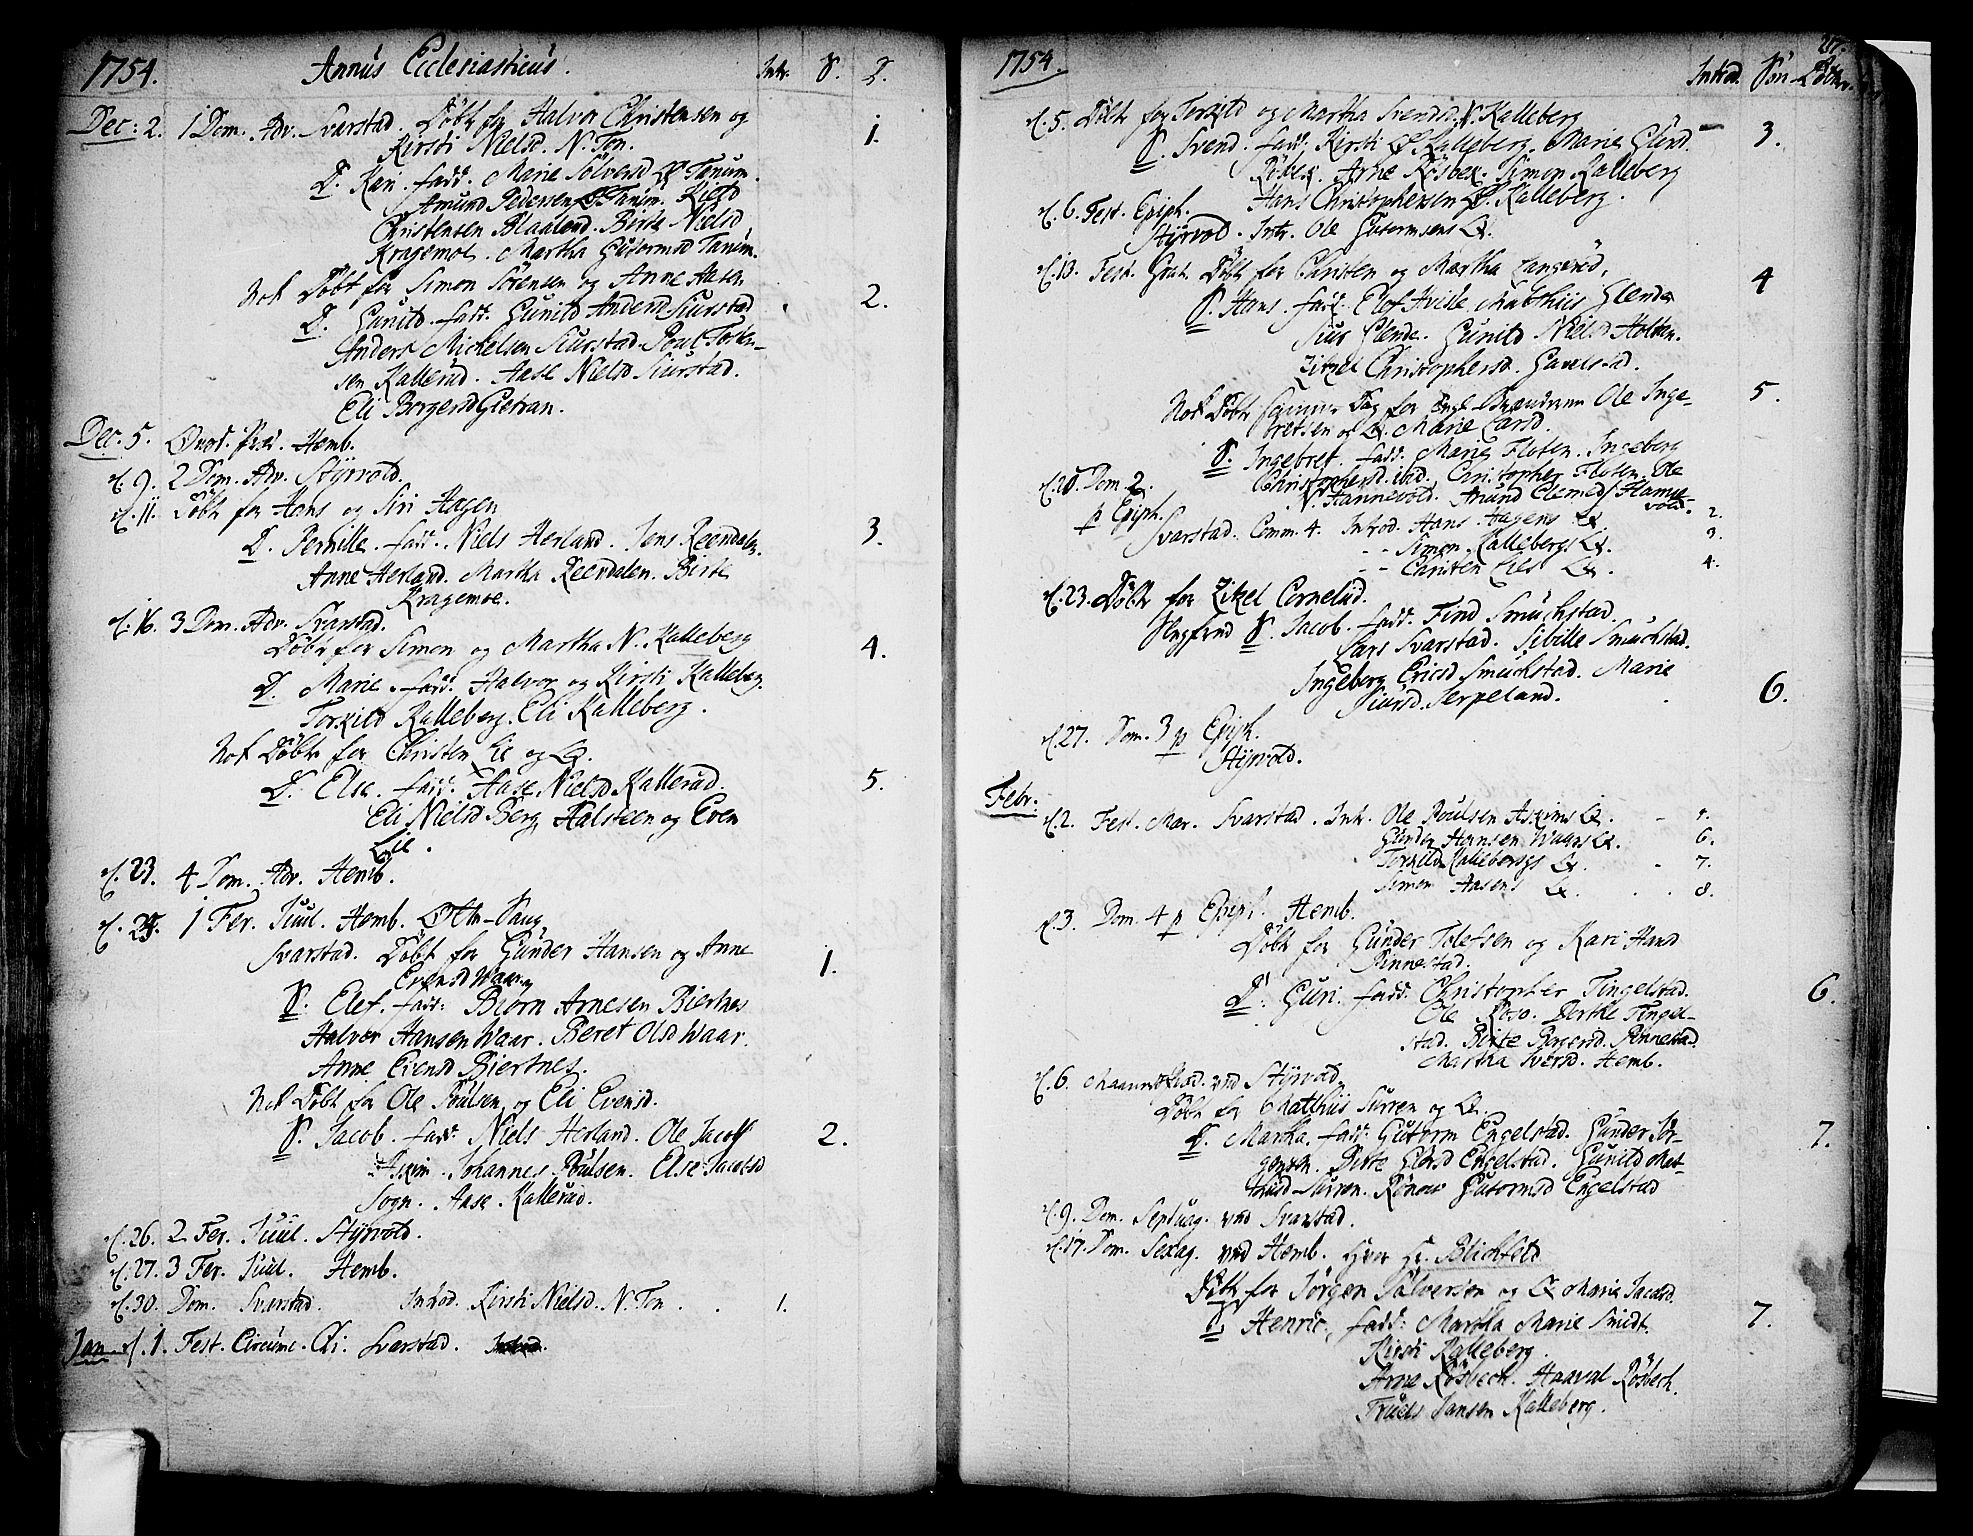 1754. Annus Ecclesiasticus. Intr. S. D.
Dec: 2. 1 Dom. Adv. Svarstad. Döbt for Halvor Christensen og
Kirsti Nielsd. N. Ton. 1.
D. Kari. fadd. Marie Sölversd Ø Tanum.
Amund Pedersen Ø Tanum. Kield
Christensen Blaalind. Birte Nielsd
Kragemoe. Martha Gutormsd Tanum.
Nok Döbt for Simon Sörensen og Anne Aasen
D. Gunild. fadd. Gunild Andersd Siurstad 2.
Anders Mickelsen Siurstad. Poul Torku-
sen Kallerud. Aase Nielsd Siurstad.
Eli Borgersd Gietran.
Dec. 5. Qvart. Præd. Hemb.
d. 9. 2 Dom. Adv. Styrvold.
d. 11. Döbt for Hans og Siri Hagen
D. Pernille. fadd. Niels Herland. Jens Reendalen. 3.
Anne Herland. Martha Reendalen. Birte
Kragemoe.
d. 16. 3 Dom. Adv. Svarstad.
Döbt for Simon og Martha N. Kalleberg 4.
D. Marie. fadd. Halvor og Kirsti Kalleberg.
Torkild Kalleberg. Eli Kalleberg.
Nok Döbt for Christen Lie og Qv.
D. Else. fadd. Aase Nielsd Kallerud. 5.
Eli Nielsd Berg, Halsteen og Even
Lie.
d. 23. 4 Dom. Adv. Hemb.
d. 25. 1 Fer. Juul. Hemb. Otte-Sang
Svarstad. Döbt for Gunder Hansen og Anne
Evensd Waar. 1.
S. Elef. fadd: Biörn Arnesen Biertnes
Halvor Hansen Waar. Beret Olsd Waar.
Anne Evensd Biertnes.
Nok Döbt for Ole Poulsen og Eli Evensd.
S. Jacob. fadd. Niels Herland. Ole Jacobs 2.
Askim. Johannes Poulsen. Else Jacobsd
Sogn. Aase Kallerud.
d. 26. 2 Fer. Juul. Styrvold.
d. 27. 3 Fer. Juul. Hemb.
d. 30. Dom. Svarstad. Introd. Kirsti Nielsd. N. Ton. 1.
Jan d. 1. Fest. Circumc. Chi. Svarstad.
1754. Introd. Sön Dötr.
d. 5. Döbt for Torkild og Martha Svendsd. N. Kalleberg
S. Svend. fadd. Kirsti Ø Kalleberg. Marie Glersd. 3.
Rösbek. Arne Rösbek. Simon Kalleberg
Hans Christophersen Ø. Kalleberg.
d. 6. Fest. Epiph.
Styrvold. Intr. Ole Gutormsens Qv.
d. 13. Fest. Döbt for Christen og Martha Langerud.
S. Hans. fadd. Elof Hvitle Matthiis Glende 4
Siur Glende. Gunild Nielsd Holten.
Zitzel Christophersd. Gavelstad.
Nok Döbt samme Dag for Ole Inge- 5.
bretsen og Qv. Marie Larsd.
S. Ingebret. fadd. Marie Floten. Ingeberg
Christophersd. ibid. Christopher Floten. Ole
N. Hannevold. Amund Clemeds Hanne-
vold.
d. 20. Dom 2.
p Epiph.
Svarstad. Comm. 4. Introd. Hans Hagens Qv. 2.
Simon Kallebergs Qv. 3.
Carsten Lies Qv. 4.
d. 23. Döbt for Zitzel Cornelsd.
S. Jacob. fadd. Find Smuchstad.
Lars Svarstad. Sibille Smuchstad.
Ingeberg Ericsd Smuchstad. Marie
Siursd. Serpeland. 6.
d. 27. Dom. 3 p Epiph.
Styrvold.
Febr. d. 2. Fest. Mar. Svarstad. Intr. Ole Poulsen Askims Qv. 5.
Gunder Hansen Waars Qv. 6.
Torkild Kallebergs Qv. 7.
Simon Aasens Qv. 8.
d. 3. Dom. 4 p Epiph. Hemb.
Döbt for Gunder Tolefsen og Kari Hansd
Rinnestad.
D. Guri. fadd. Christopher Tingelstad. 6.
Ole Moso. Dorthe Tingel-
stad. Birte Borgersd. Rinnestad.
Martha Iversd. Hemb.
d. 6. ved Styrvold.
Döbt for Matthiis Surren og Qv.
D. Martha. fadd. Gutorm Engelstad. Gunder Jör- 7.
gensen. Birte Glersd Engelstad. Gunild Mat-
thisd Surren. Rönow Gutormsd Engelstad
d. 9. Dom. Septuag. ved Svarstad.
d. 17. Dom. Sexag. ved Hemb. Hver Hr. Blichfeld
Döbt for Jörgen Sölversen og Qv Marie Jacobsd.
S. Henric. fadd: Martha Marie Smidt. 7.
Kirsti Kalleberg.
Arne Rösbech. Haaval Rösbech.
Truels Jansen Kalleberg.